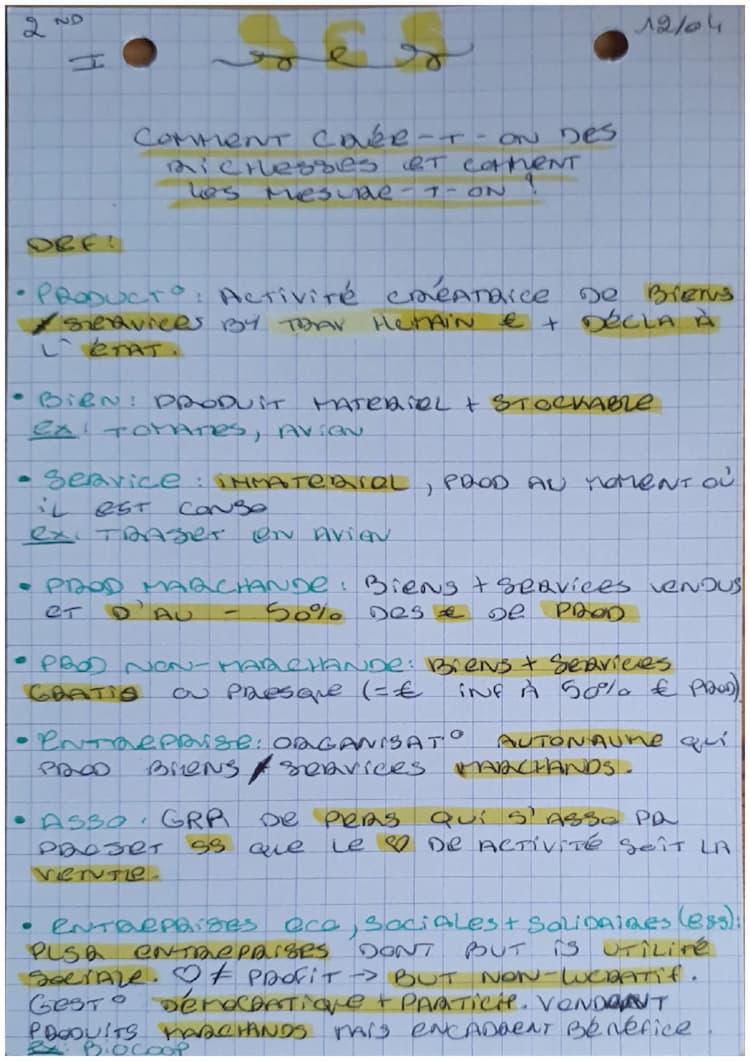 2ND
I
SES
12/04
COMMENT CRÉE-T-ON DES
RICHESSES ET COMMENT
LES MESURE-T-ON ?
DEF:
• PRODUCT°: ACTIVITÉ CRÉATRICE DE BIENS
/ SERVICES BY TRAV HUMAIN € + DÉCLA À
L'ÉTAT.
• BIEN: PRODUIT MATERIEL + STOCKABLE
ex: TOMATES, AVION
• SERVICE: IMMATERIEL, PROD AU MOMENT OÙ
IL EST CONSO
ex: TRAJET EN AVION
• PROD MARCHANDE: BIENS + SERVICES VENDUS
ET D'AU - 50% DES € DE PROD
• PROD NON-MARCHANDE: BIENS + SERVICES
GRATIS OU PRESQUE (= € INF À 50% € PROD)
• ENTREPRISE: ORGANISAT° AUTONAUME QUI
PROD BIENS / SERVICES MARCHANDS.
• ASSO: GRP DE PERS QUI S'ASSO PR
PROJET SS QUE LE ♡ DE ACTIVITÉ SOIT LA
VENTE.
• ENTREPRISES ECO, SOCIALES + SOLIDAIRES (ESS):
PLSR ENTREPRISES DONT BUT IS UTILITÉ
SOCIALE. ♡ ≠ PROFIT → BUT NON-LUCRATIF.
GEST° DÉMOCRATIQUE + PARTICIP. VENDENT
PRODUITS MARCHANDS MAIS ENCADRENT BÉNÉFICE.
Ex: BIOCOOP